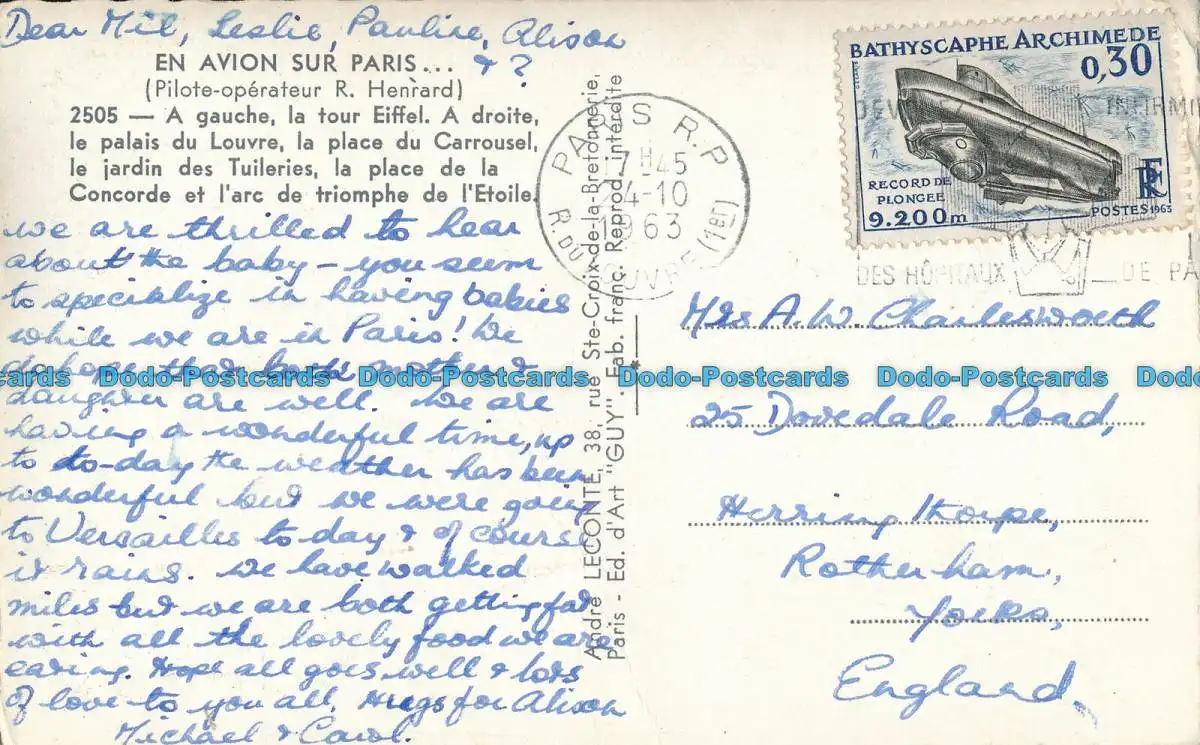 Dear Mil, Leslie, Pauline, Alison
& ?
EN AVION SUR PARIS...
(Pilote-opérateur R. Henrard)
2505 — A gauche, la tour Eiffel. A droite,
le palais du Louvre, la place du Carrousel,
le jardin des Tuileries, la place de la
Concorde et l'arc de triomphe de l'Etoile.
we are thrilled to hear
about the baby – you seem
to specialize in having babies
while we are in Paris! We
do hope that both mother &
daughter are well. We are
having a wonderful time, up
to to-day the weather has been
wonderful but we were going
to Versailles to day & of course
it rains. We have walked
miles but we are both getting fat
with all the lovely food we are
eating. Hope all goes well & lots
of love to you all. Hugs for Alison
Michael & Carol.
André LECONTE, 38, rue Ste-Croix-de-la-Bretonnerie,
Paris - Ed. d'Art "GUY". Fab. franç. Reprod. interdite
PARIS R.P
7H45
4-10
1963
R. DU LOUVRE (1er)
BATHYSCAPHE ARCHIMEDE
0,30
RECORD DE
PLONGEE
9.200m
RF
POSTES 1963
INFIRMI
DES HÔPITAUX DE PA
Mrs A.W. Charlesworth
25 Dovedale Road,
Herringthorpe,
Rotherham,
Yorks,
England.
Dodo-Postcards Dodo-Postcards Dodo-Postcards Dodo-Postcards Dodo-Postcards